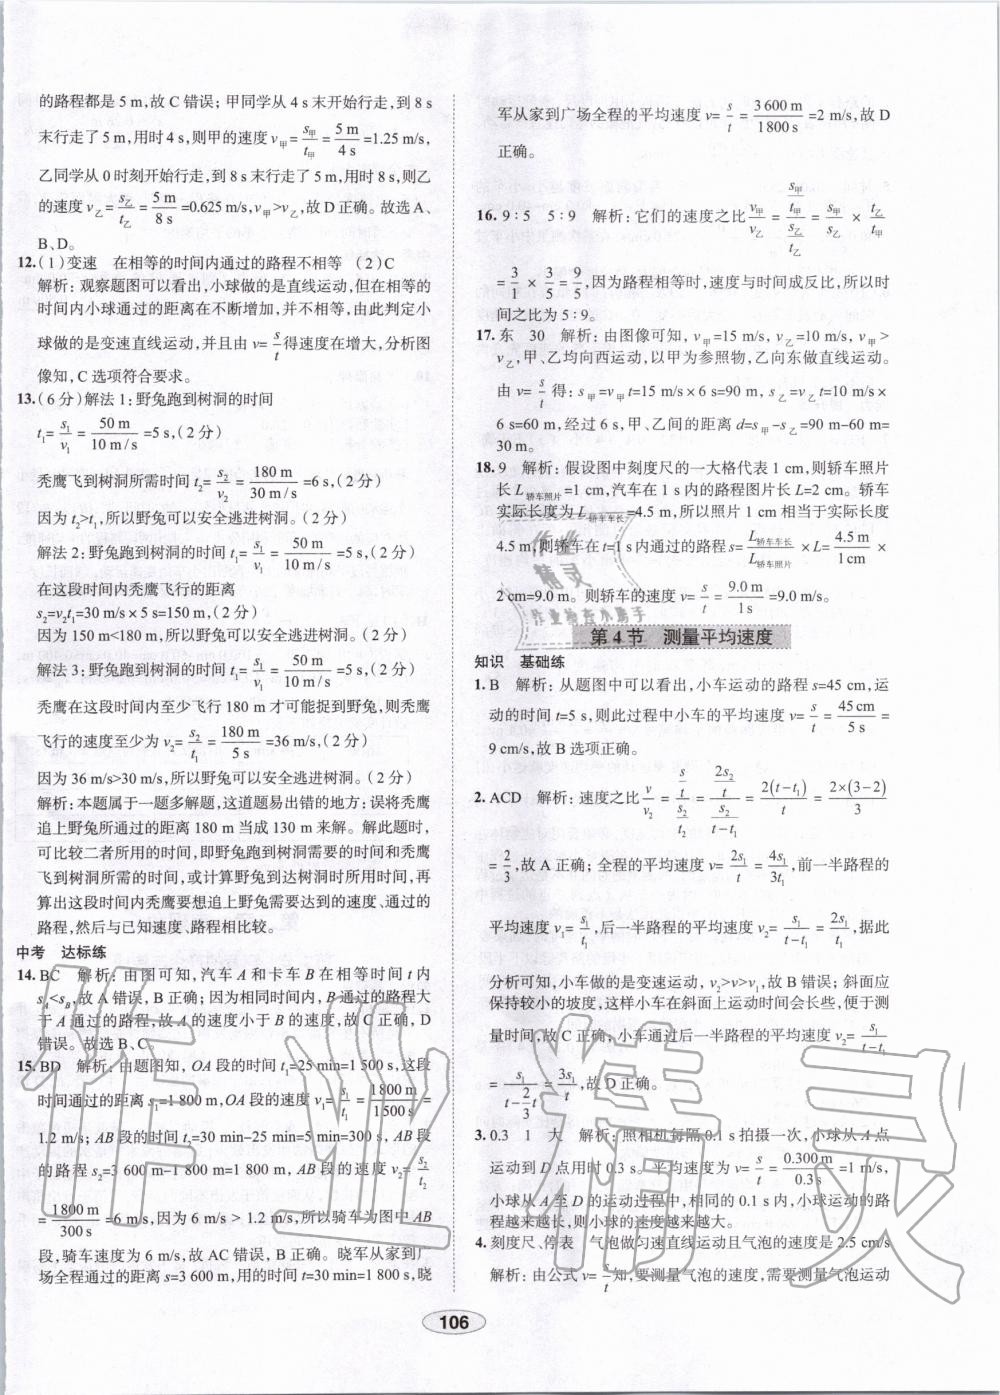 的路程都是 5 m,故 C 错误;甲同学从 4 s 末开始行走,到 8 s
末行走了 5 m,用时 4 s,则甲的速度 v甲=s甲/t甲=5 m/4 s=1.25 m/s,
乙同学从 0 时刻开始行走,到 8 s 末行走了 5 m,用时 8 s,则乙
的速度 v乙=s乙/t乙=5 m/8 s=0.625 m/s,v甲>v乙,故 D 正确。故选 A、
B、D。
12.(1)变速 在相等的时间内通过的路程不相等 (2)C
解析:观察题图可以看出,小球做的是直线运动,但在相等的
时间内小球通过的距离在不断增加,并不相等,由此判定小
球做的是变速直线运动,并且由 v=s/t得速度在增大,分析图
像知,C 选项符合要求。
13.(6 分)解法 1:野兔跑到树洞的时间
t₁=s₁/v₁=50 m/10 m/s=5 s,(2 分)
秃鹰飞到树洞所需时间 t₂=s₂/v₂=180 m/30 m/s=6 s,(2 分)
因为 t₂>t₁,所以野兔可以安全逃进树洞。(2 分)
解法 2:野兔跑到树洞的时间 t₁=s₁/v₁=50 m/10 m/s=5 s(2 分)
在这段时间内秃鹰飞行的距离
s₂=v₂t₁=30 m/s×5 s=150 m,(2 分)
因为 150 m<180 m,所以野兔可以安全逃进树洞。(2 分)
解法 3:野兔跑到树洞的时间 t₁=s₁/v₁=50 m/10 m/s=5 s(2 分)
秃鹰在这段时间内至少飞行 180 m 才能捉到野兔,则秃鹰
飞行的速度至少为 v₂=s₂/t₁=180 m/5 s=36 m/s,(2 分)
因为 36 m/s>30 m/s,所以野兔可以安全逃进树洞。(2 分)
解析:本题属于一题多解题,这道题易出错的地方:误将秃鹰
追上野兔所通过的距离 180 m 当成 130 m 来解。解此题时,
可比较二者所用的时间,即野兔跑到树洞需要的时间和秃鹰
飞到树洞所需的时间,或计算野兔到达树洞时所用时间,再
算出这段时间内秃鹰要想追上野兔需要达到的速度、通过的
路程,然后与已知速度、路程相比较。
中考 达标练
14.BC 解析:由图可知,汽车 A 和卡车 B 在相等时间 t 内
sA<sB,故 A 错误,B 正确;因为相同时间内,B 通过的路程大
于 A 通过的路程,故 A 的速度小于 B 的速度,故 C 正确,D
错误。故选 B、C。
15.BD 解析:由题图知,OA 段的时间 t₁=25 min=1 500 s,这段
时间通过的距离 s₁=1 800 m,OA 段的速度 v₁=s₁/t₁=1800 m/1500 s=
1.2 m/s;AB 段的时间 t₂=30 min-25 min=5 min=300 s,AB 段
的路程 s₂=3 600 m-1 800 m=1 800 m,AB 段的速度 v₂=s₂/t₂
=1800 m/300 s=6 m/s,因为 6 m/s > 1.2 m/s,所以骑车为图中 AB
段,骑车速度为 6 m/s,故 AC 错误,B 正确。晓军从家到广
场全程通过的距离 s=3 600 m,用的时间 t=30 min=1800 s,晓
军从家到广场全程的平均速度 v=s/t=3 600 m/1800 s=2 m/s,故 D
正确。
16. 9∶5 5∶9 解析:它们的速度之比 v甲/v乙=(s甲/t甲)/(s乙/t乙)=s甲/s乙×t乙/t甲
=3/1×3/5=9/5,因为路程相等时,速度与时间成反比,所以时
间之比为 5∶9。
17. 东 30 解析:由图像可知,v甲=15 m/s,v乙=10 m/s,v甲>
v乙,甲、乙均向西运动,以甲为参照物,乙向东做直线运动。
由 v=s/t得:s甲=v甲t=15 m/s×6 s=90 m,s乙=v乙t=10 m/s×
6 s=60 m,经过 6 s,甲、乙间的距离 d=s甲-s乙=90 m-60 m=
30 m。
18. 9 解析:假设图中刻度尺的一大格代表 1 cm,则轿车照片
长 L轿车照片=1 cm,汽车在 1 s 内的路程图片长 L=2 cm。轿车
实际长度为 L轿车车长=4.5 m,所以照片中 1 cm 相当于实际长度
4.5 m,则轿车在 t=1 s 内通过的路程 s=L轿车车长/L轿车照片×L=4.5 m/1 cm×
2 cm=9.0 m。则轿车的速度 v=s/t=9.0 m/1 s=9.0 m/s。
第 4 节 测量平均速度
知识 基础练
1. B 解析:从题图中可以看出,小车运动的路程 s=45 cm,运
动的时间 t=5 s,则此过程中小车的平均速度 v=s/t=45 cm/5 s=
9 cm/s,故 B 选项正确。
2. ACD 解析:速度之比 v/v₂=(s/t)/(s₂/t₂)=(2s₂/t)/(s₂/(t-t₁))=2(t-t₁)/t=2×(3-2)/3
=2/3,故 A 正确;全程的平均速度 v=2s₁/t=4s₁/3t₁,前一半路程的
平均速度 v₁=s₁/t₁,后一半路程的平均速度 v₂=s₁/(t-t₁)=2s₁/t₁,据此
分析可知,小车做的是变速运动,v₂>v>v₁,故 B 错误;斜面应
保持较小的坡度,这样小车在斜面上运动时间会长些,便于测
量时间,故 C 正确;小车通过后一半路程的平均速度 v₂=s₁/(t-t₁)
=s₁/(t-2/3 t)=3s₁/t,故 D 正确。
3. 0.3 1 大 解析:照相机每隔 0.1 s 拍摄一次,小球从 A 点
运动到 D 点用时 0.3 s。平均速度为 v=s/t=0.300 m/0.3 s=1 m/s,
小球从 A 至 D 的运动过程中,相同的 0.1 s 内,小球运动的路
程越来越长,则小球的速度越来越大。
4. 刻度尺、停表 气泡做匀速直线运动且气泡的速度是 2.5 cm/s
解析:由公式 v=s/t知,要测量气泡的速度,需要测量气泡运动
106
作业
精灵
作业检查小助手
作业精灵